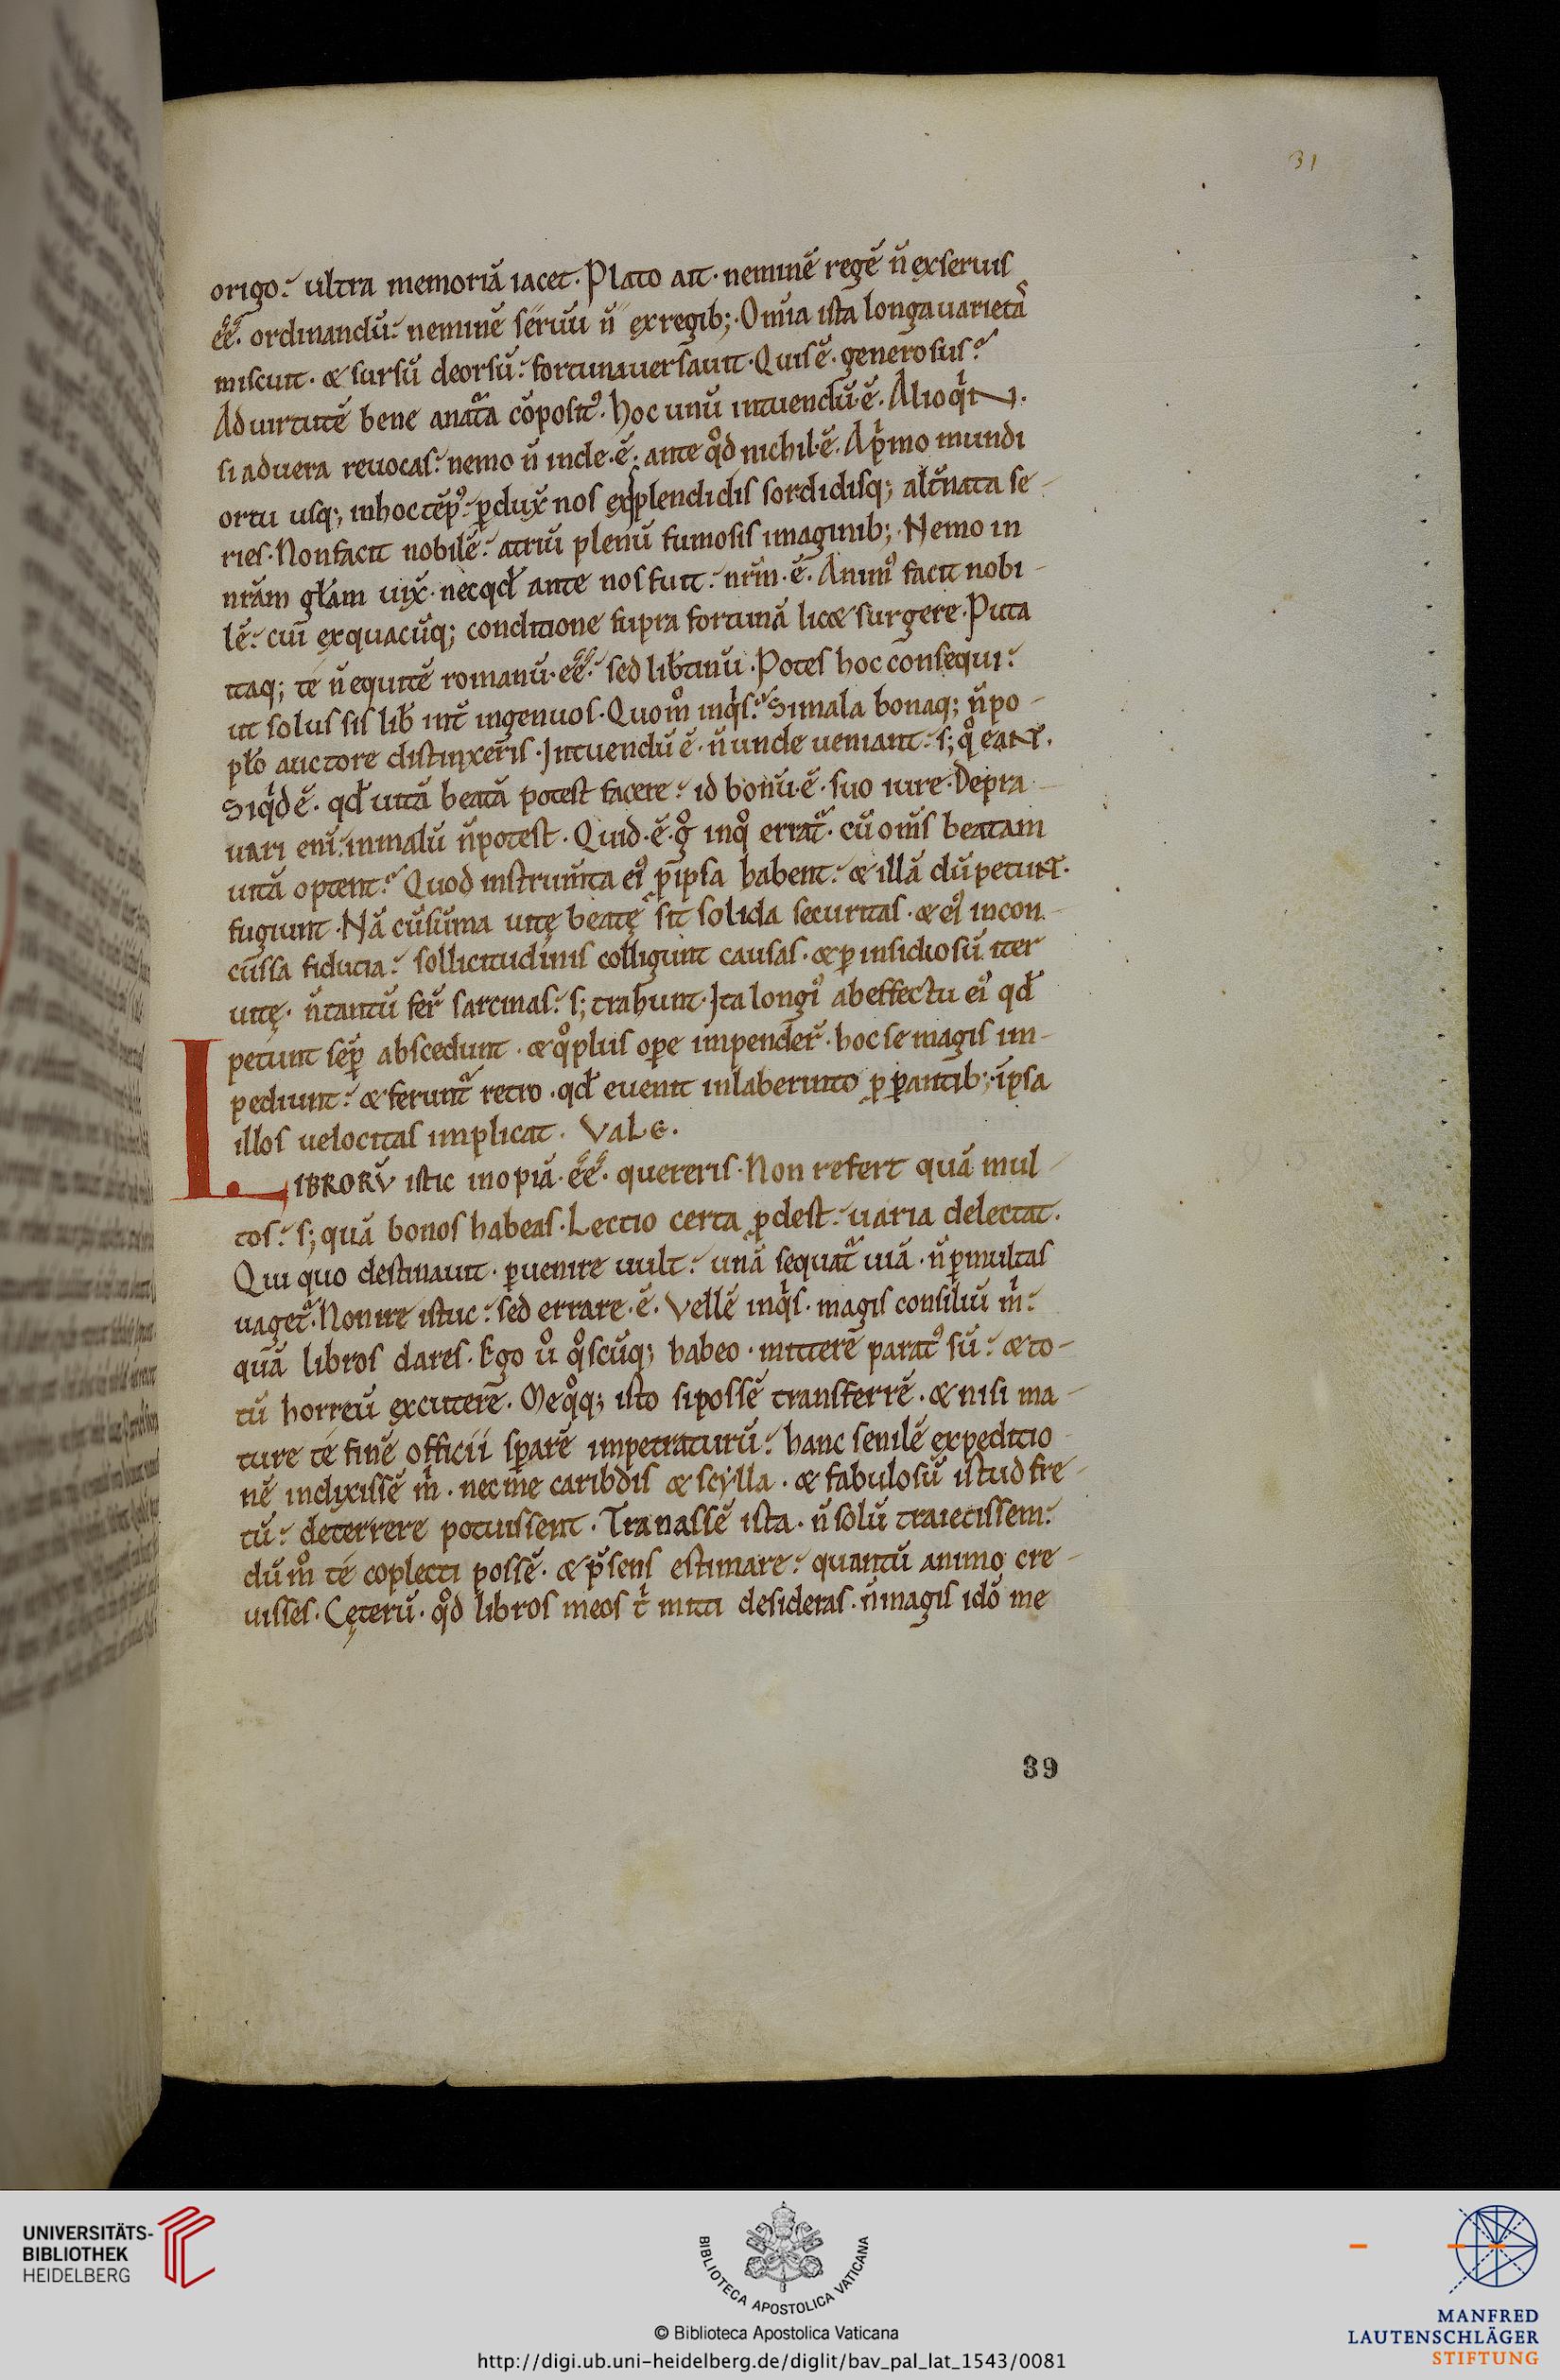 31
origo. ultra memoriā iacet. Plato ait. neminē regē n̄ exseruis
ēē. ordinandū. neminē seruū n̄ exregib; Om̄ia ista longauarietaˢ
miscuit. & sursū deorsū. fortunauersauit. Quis ē. generosus?
Aduirtutē bene anat̄a cōposit᾽. hoc unū intuendū.ē. Alioqͥn.
si aduera reuocas. nemo n̄ inde.ē. ante qͦd nichil.ē. Apͥmo mundi
ortu usq; inhoctēp᾽. ꝓdux̄ nos exsplendidis sordidisq; alt̄nata se-
ries. Nonfacit nobilē. atriū plenū fumosis imaginib; Nemo in
nr̄am gl̄am uix̄. necqd̄ ante nosfuit. nr̄m.ē. Anim᾽ facit nobi-
lē. cui exquacūq; conditione supra fortunā lic& surgere. Puta
itaq; te n̄ equitē romanū.ēē. sed lib̄tinū. Potes hoc consequi.
ut solus sis lib̄ int̄ ingenuos. Quom̊ inqͥs. Simala bonaq; n̄ po-
pl̄o auctore distinxeris. Intuendū ē. n̄ unde ueniant. s; qͦ eant.
Siqͥd ē. qd̄ uitā beatā potest facere. id bonū.ē. suo iure. Depra-
uari enī. inmalū n̄potest. Quid.ē. gͦ inqͦ errat̄. cū om̄s beatam
uitā optent. Quod instrum̄ta ei᾽ p̄ipsa habent. & illā dūpetunt.
fugiunt. Nā cūsūma uitę beatę sit solida securitas. & ei᾽ incon-
cussa fiducia. sollicitudinis colligunt causas. &ꝑ insidiosū iter
uitę. n̄tantū fer̄ sarcinas. s; trahunt. Ita longi᾽ abeffectu ei᾽ qd̄
petunt sēꝑ abscedunt. &qͦplus oꝑe impender̄. hoc se magis im-
pediunt. & ferunt̄ retro. qd̄ euenit inlaberinto ꝓꝑantib; ipsa
illos uelocitas implicat. Vale.
LIBRORŪ istic inopiā.ēē. quereris. Non refert quā mul-
tos. s; quā bonos habeas. Lectio certa ꝓdest. uaria delectat.
Qui quo destinauit. ꝑuenire uult. unā sequat̄ uiā. n̄ ꝑmultas
uaget̄. Nonire istuc. sed errare.ē. Vellē inqͥs. magis consiliū mͥ.
quā libros dares. Ego ů qͦscūq; habeo. mitterē parat᾽ sū. &to-
tū horreū excuterē. Meqͦq; isto sipossē transferrē. & nisi ma-
ture te finē officii sꝑarē impetraturū. hanc senilē expeditio-
nē indixissē mͥ. necme caribdis & scylla. & fabulosū istud fre-
tū. deterrere potuissent. Tranassē ista. n̄ solū traiecissem.
dūm̊ te coplecti possē. & p̄sens estimare. quantū animo cre-
uisses. Cęterū. qͦd libros meos tͥ mitti desideras. n̄ magis idō me
39
UNIVERSITÄTS-
BIBLIOTHEK
HEIDELBERG
BIBLIOTECA APOSTOLICA VATICANA
© Biblioteca Apostolica Vaticana
http://digi.ub.uni-heidelberg.de/diglit/bav_pal_lat_1543/0081
MANFRED
LAUTENSCHLÄGER
STIFTUNG